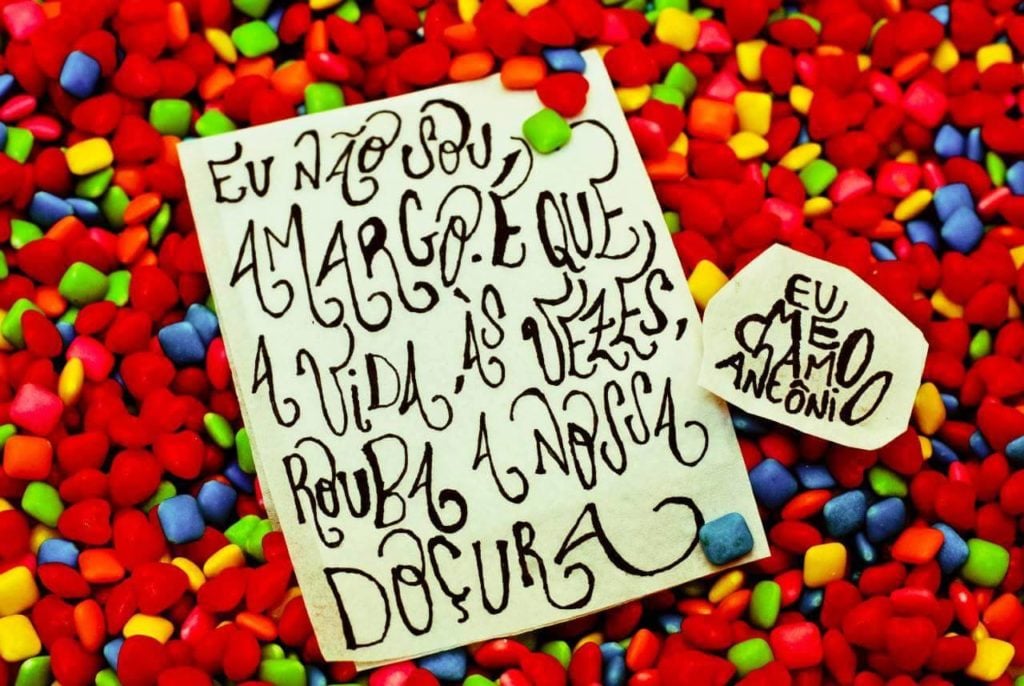 EU NÃO SOU
AMARGO. É QUE,
A VIDA, ÀS VEZES,
ROUBA A NOSSA
DOÇURA
EU
ME
CHAMO
ANTÔNIO